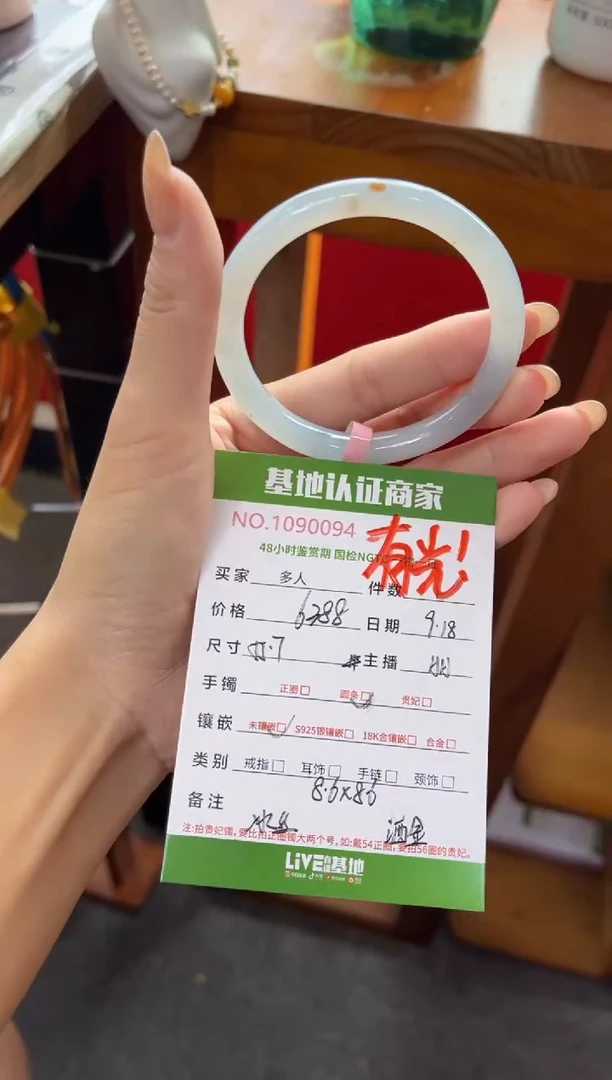 基地认证商家
NO.1090094
有光!
48小时鉴赏期 国检NGTC
买家 多人 件数
价格 6288 日期 9.18
尺寸 主播
手镯 正圈□ 圆条□ 贵妃□
镶嵌 未镶嵌□ S925银镶嵌□ 18K金镶嵌□ 合金□
类别 戒指□ 耳饰□ 手链□ 颈饰□
8.6x8.6
备注
洒金
注:拍贵妃镯,要比拍正圈镯大两个号,如:戴54正圈,要拍56圈的贵妃。
LiVE 基地